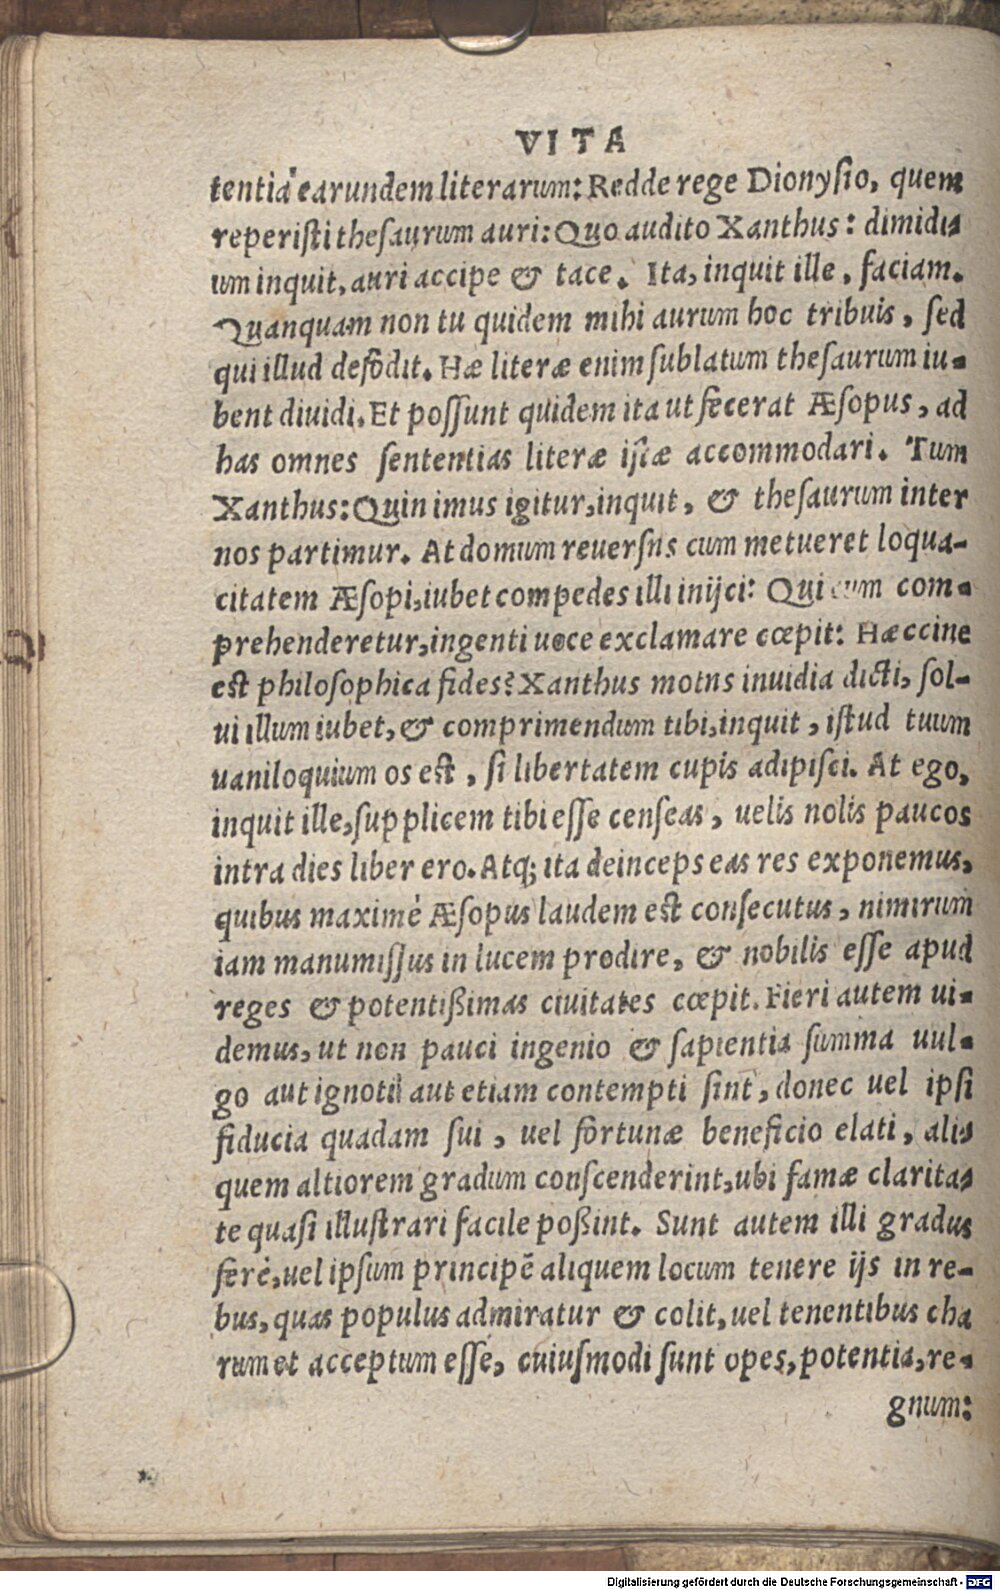 VITA
tentia earundem literarum: Redde rege Dionysio, quem
reperisti thesaurum auri: Quo audito Xanthus: dimidi-
um inquit, auri accipe & tace. Ita, inquit ille, faciam.
Quanquam non tu quidem mihi aurum hoc tribuis, sed
qui illud defōdit. Hæ literæ enim sublatum thesaurum iu-
bent diuidi. Et possunt quidem ita ut fecerat Æsopus, ad
has omnes sententias literæ istæ accommodari. Tum
Xanthus: Quin imus igitur, inquit, & thesaurum inter
nos partimur. At domum reuersus cum metueret loqua-
citatem Æsopi, iubet compedes illi inijci: Qui cum com-
prehenderetur, ingenti uoce exclamare cœpit: Hæccine
est philosophica fides? Xanthus motus inuidia dicti, sol-
ui illum iubet, & comprimendum tibi, inquit, istud tuum
uaniloquium os est, si libertatem cupis adipisci. At ego,
inquit ille, supplicem tibi esse censeas, uelis nolis paucos
intra dies liber ero. Atq; ita deinceps eas res exponemus,
quibus maximè Æsopus laudem est consecutus, nimirum
iam manumissus in lucem prodire, & nobilis esse apud
reges & potentißimas ciuitates cœpit. Fieri autem ui-
demus, ut non pauci ingenio & sapientia summa uul-
go aut ignoti aut etiam contempti sint, donec uel ipsi
fiducia quadam sui, uel fortunæ beneficio elati, ali-
quem altiorem gradum conscenderint, ubi famæ clarita-
te quasi illustrari facile poßint. Sunt autem illi gradus
ferè, uel ipsum principē aliquem locum tenere ijs in re-
bus, quas populus admiratur & colit, uel tenentibus cha
rum et acceptum esse, cuiusmodi sunt opes, potentia, re-
gnum:
Digitalisierung gefördert durch die Deutsche Forschungsgemeinschaft - DFG